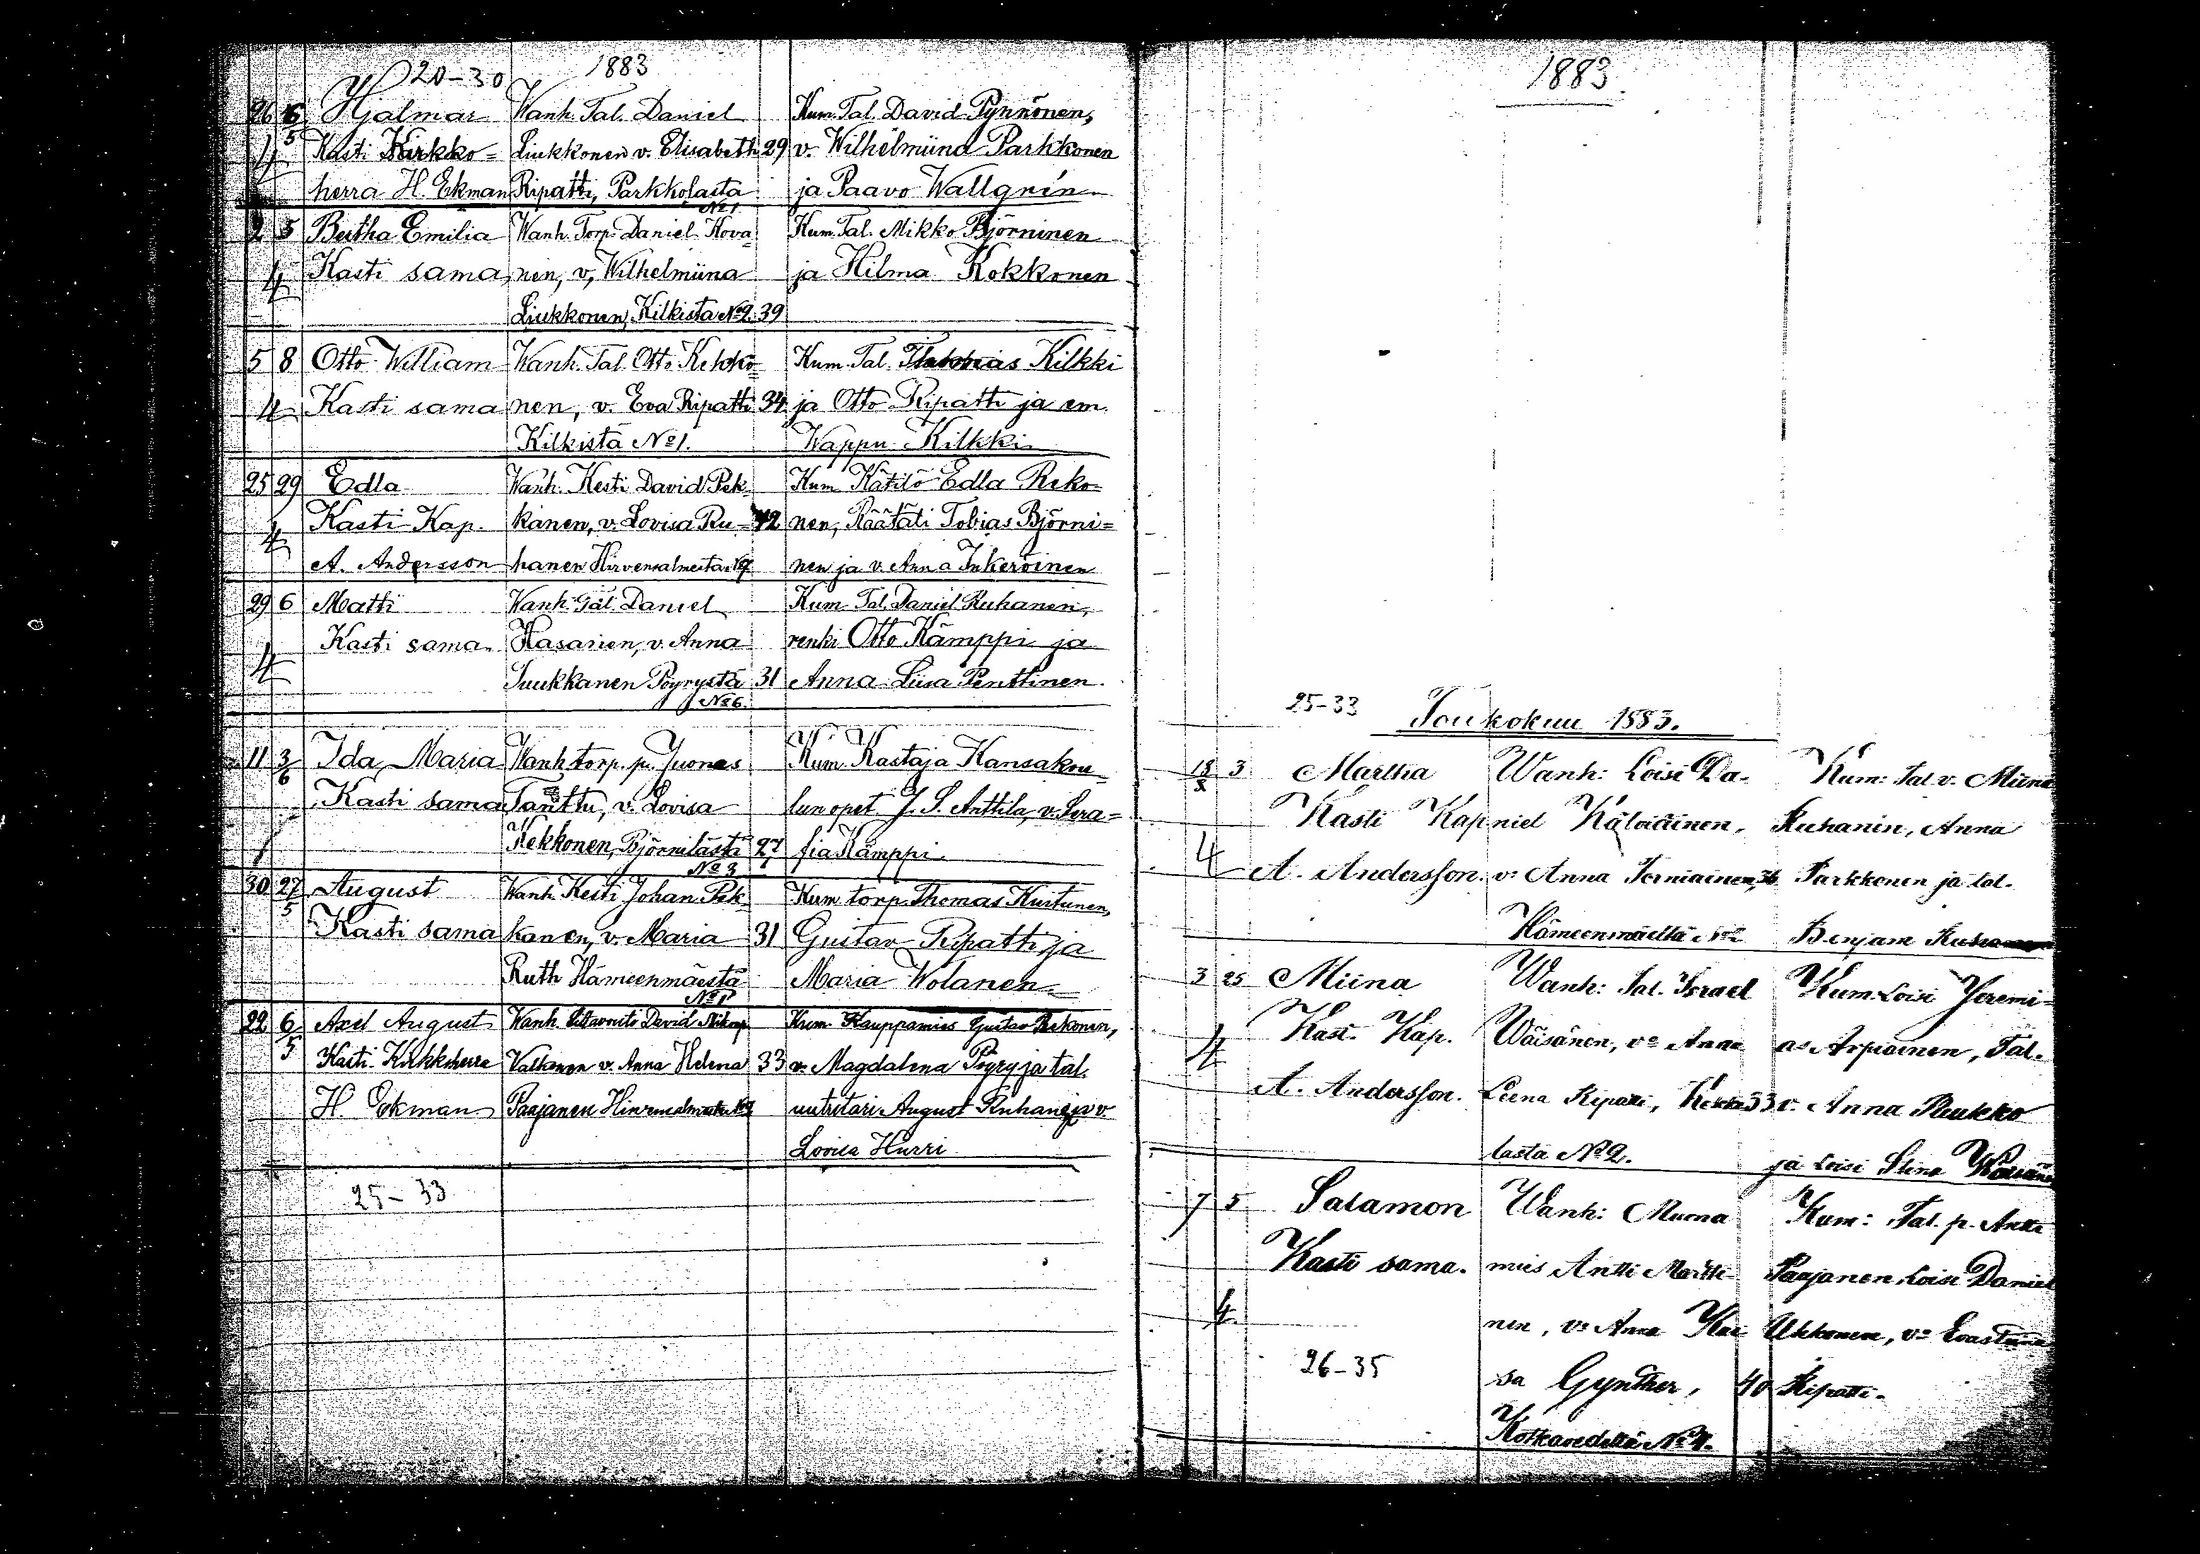 20-30 1883
26 6 Hjalmar Wanh. Tal. Daniel Kum. Tal. David Pynnönen,
4 5 Kasti Kirkko= Liukkonen v. Elisabeth 29 v. Wilhelmiina Parkkonen
herra H. Ekman Ripatti, Parkkolasta ja Paavo Wallgrén
No 1
2 5 Bertha Emilia Wanh. Torp. Daniel Kova= Kum. Tal. Mikko Björninen
4 Kasti sama nen, v. Wilhelmiina ja Hilma Kokkonen
Liukkonen, Kilkistä No 2. 39
5 8 Otto William Wanh. Tal. Otto Kekko= Kum. Tal. Kilkki
4 Kasti sama nen, v. Eva Ripatti 34 ja Otto Ripatti ja em.
Kilkistä No 1. Wappu Kilkki
25 29 Edla Wanh. Kesti David Pek- Kum. Kätilö Edla Reko-
4 Kasti Kap. kanen, v. Lovisa Ru- 42 nen, Räätäli Tobias Björni=
A. Andersson hanen Hirvensalmelta nen ja v. Anna Inkeroinen
29 6 Matti Wanh. Tal. Daniel Kum. Tal. Daniel Ruhanen,
4 Kasti sama Hasanen, v. Anna renki Otto Kämppi ja
Juukkanen Pöyrystä 31 Anna Liisa Penttinen.
No 6.
11 3/6 Ida Maria Wanh. torp. p. Juonas Kum. Kastaja Kansakou-
Kasti sama Tanttu, v. Lovisa lun opet. J. S. Anttila, v. Sera=
Kekkonen, Björnilästä 27 fia Kämppi.
No 3
30 27 August Wanh. Kesti Johan Pek- Kum. torp. Thomas Kuitunen,
5 Kasti sama kanen, v. Maria 31 Gustav Ripatti ja
Ruth Hämeenmäestä Maria Wolanen
No 1
22 6 Axel August Wanh. David Kum. Kauppamies Gustav Rekonen,
5 Kasti Kirkkoherra Valkonen v. Anna Helena 33 v. Magdalena Pöyry ja tal.
H. Ekman Paajanen August Ruhanen ja v.
Lovisa Hurri
25-33
1883.
25-33 Toukokuu 1883.
18 3 Martha Wanh: Loisi Da- Kum: Tal. v. Miina
Kasti Kap niel Ruhanin, Anna
4 A. Andersson. v: Anna Torniainen, 36 Parkkonen ja tal.
Hämeenmäeltä Benjam
3 25 Miina Wanh: Tal. Israel Kum: Loisi Jeremi-
4 Kast. Kap. Wäisänen, v: Anna as Arpiainen, Tal.
A. Andersson. Leena Ripatti, Kekko 33 v. Anna Ruukko
lasta No 2. ja Loisi Stina
7 5 Salamon Wanh: Muona Kum: Tal. p. Antti
Kasti sama. mies Antti Martti- Paajanen Loisi Daniel
4 nen, v: Anna Kai Ukkonen, v:
26-35 sa Gynther, 40 Ripatti.